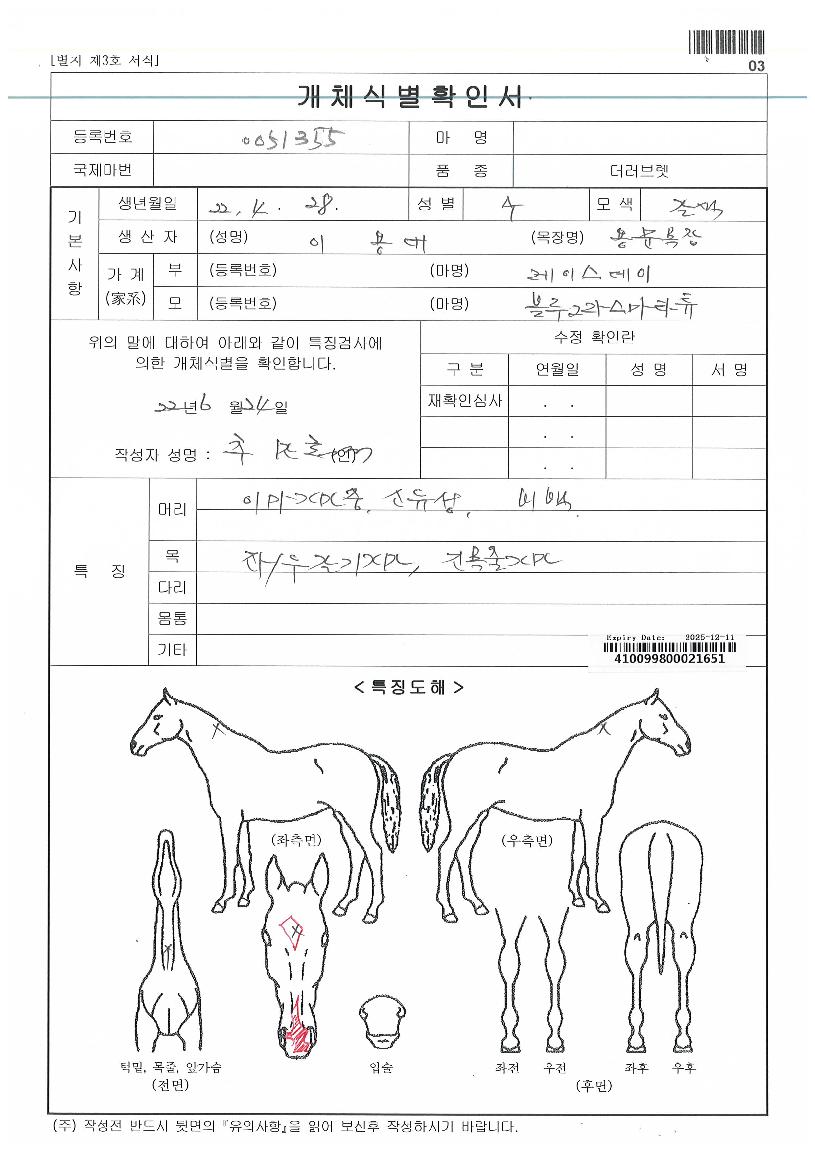 [별지 제3호 서식]
03
개체식별확인서
등록번호 0051355 마 명
국제마번 품 종 더러브렛
기본사항
생년월일 22. 4. 28. 성별 수 모색 갈색
생산자 (성명) 이 용 대 (목장명) 용문목장
가계 (家系) 부 (등록번호) (마명) 레이스데이
모 (등록번호) (마명) 블루그라스마타튜
위의 말에 대하여 아래와 같이 특징검사에
의한 개체식별을 확인합니다.
22년 6월 24일
작성자 성명 : (인)
수정 확인란
구 분 연월일 성 명 서 명
재확인심사 . .
. .
. .
특 징
머리
목
다리
몸통
기타
Expiry Date: 2025-12-11
410099800021651
< 특징도해 >
(좌측면) (우측면)
턱밑, 목줄, 앞가슴 입술 좌전 우전 좌후 우후
(전면) (후면)
(주) 작성전 반드시 뒷면의 『유의사항』을 읽어 보신후 작성하시기 바랍니다.